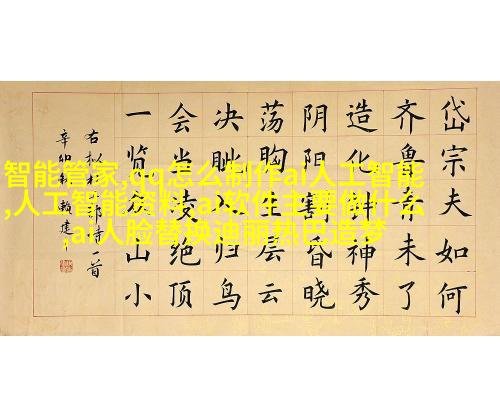 岱宗夫如何
齐鲁青未了
造化钟神秀
阴阳割昏晓
荡胸生层云
决眦入归鸟
会当凌绝顶
一览众山小
诗一首
辛卯
智能管家,qq怎么制作ai人工智能
,人工智能资料,ai软件主要做什么
,ai人脸替换迪丽热巴造梦